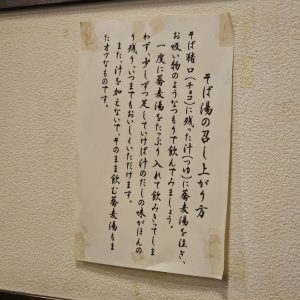 そば湯の召し上がり方
そば猪口(チョコ)に残った汁(つゆ)に蕎麦湯を注ぎ、
お吸い物のようなつもりで飲んでみましょう。
一度に蕎麦湯をたっぷり入れて飲みきってしま
わず、少しずつ足していけば汁のだしの味がほんの
り残り、いつまでもおいしくいただけます。
また、汁を加えないで、そのまま飲む蕎麦湯もま
たオツなものです。